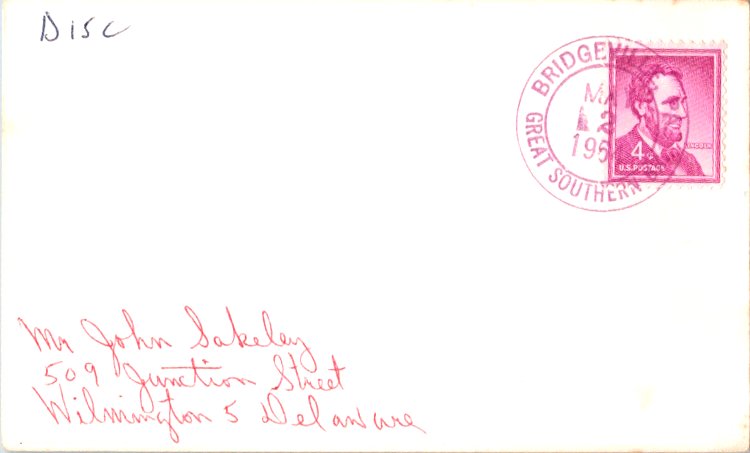 DISC
BRIDGEVIL
MA
2
195
GREAT SOUTHERN
LINCOLN
4¢
U.S. POSTAGE
Mr John Sakeley
509 Junction Street
Wilmington 5 Delaware